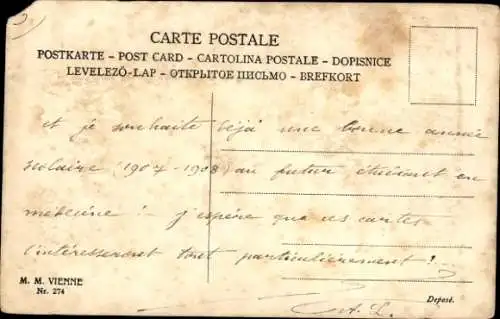 CARTE POSTALE
POSTKARTE – POST CARD – CARTOLINA POSTALE – DOPISNICE
LEVELEZŐ-LAP – ОТКРЫТОЕ ПИСЬМО – BREFKORT
et je souhaite déjà une bonne année
scolaire (1907 - 1908) au futur étudiant en
médecine ! – j'espère que ces cartes
l'intéresseront tout particulièrement !
A. L.
M. M. VIENNE
Nr. 274
Deposé.